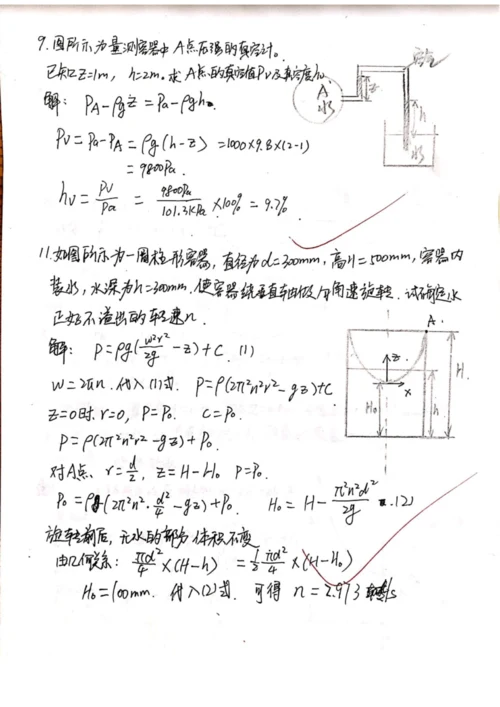 9.图所示为量测容器中A点压强的真空计。
已知Z=1m, h=2m。求A点的真空值Pv及真空度hv
解: PA-ρgz=Pa-ρgh。
Pv=Pa-PA=ρg(h-z)=1000×9.8×(2-1)
=9800Pa.
hv=Pv/Pa = 9800Pa/101.3kPa ×100% = 9.7%
空气
A
水
z
h
水
11.如图所示为一圆柱形容器,直径为d=300mm,高H=500mm,容器内
装水,水深为h=300mm,使容器绕垂直轴做等角速旋转,试确定水
正好不溢出的转速n.
解: P=ρg(w²r²/2g -z)+C. (1)
w=2πn.代入(1)式. P=ρ(2π²n²r²-gz)+C
z=0时.r=0, P=P₀. C=P₀.
P=ρ(2π²n²r²-gz)+P₀.
对A点、r=d/2, z=H-H₀ P=P₀.
P₀=ρ(2π²n²·d²/4-gz)+P₀. H₀=H-π²n²d²/2g ...(2)
旋转前后,无水的部分体积不变
由几何关系: πd²/4×(H-h) =1/2 πd²/4×(H-H₀)
H₀=100mm. 代入(2)式. 可得 n=2.973 转/s
A.
z.
x
H.
H₀
h